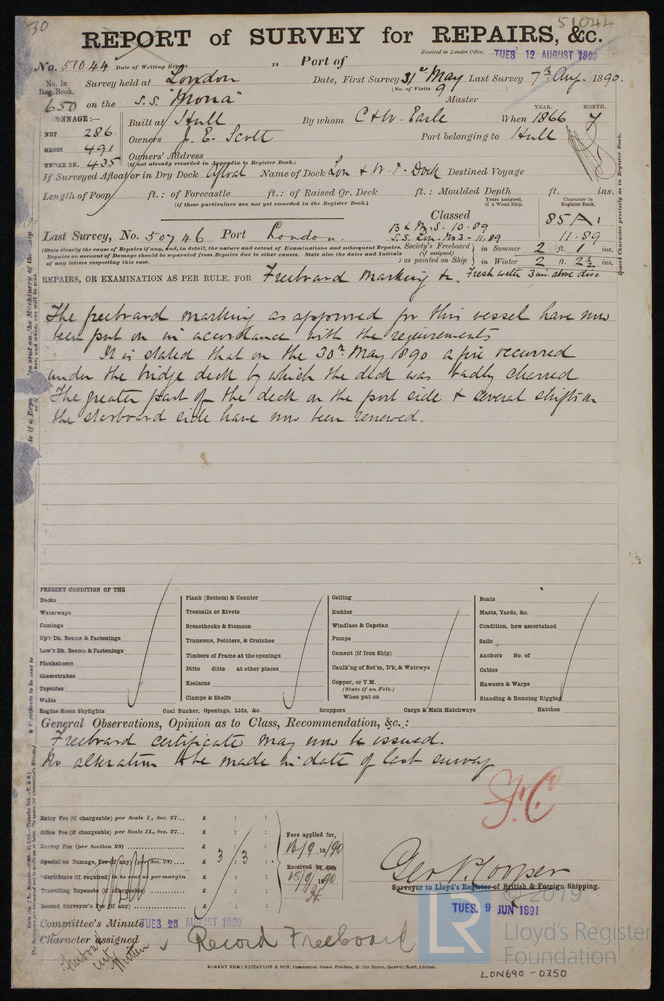 30
51044
REPORT of SURVEY for REPAIRS, &c.
Received in London Office, TUES 12 AUGUST 1890
No. 51044 Date of Writing Report 18 Port of
No. in Reg. Book. Survey held at London Date, First Survey 31st May Last Survey 7th Aug. 1890.
(No. of Visits 9 )
650 on the S.S. "Mona" Master
TONNAGE:— Built at Hull By whom C & W. Earle When 1866 7
YEAR. MONTH.
NET 286
GROSS 491 Owners J. E. Scott Port belonging to Hull
UNDER DK. 435 Owners' Address
(if not already recorded in Appendix to Register Book.)
If Surveyed Afloat or in Dry Dock Afloat Name of Dock Lon & W. I. Dock Destined Voyage
Length of Poop ft.: of Forecastle ft.: of Raised Qr. Deck ft.: Moulded Depth ft. ins.
(if these particulars are not yet recorded in the Register Book.)
Years assigned, if a Wood Ship.
Character in Register Book.
Classed 85 A1
Last Survey, No. 50746 Port London. B & M.S. 10-89
S.S. Lon. No 3 - 11.89 11-89
(State clearly the cause of Repairs if any, and, in detail, the nature and extent of Examinations and subsequent Repairs.
Repairs on account of Damage should be separated from Repairs due to other causes. State also the dates and Initials
of any letters respecting this case.
Society's Freeboard (if assigned) as painted on Ship in Summer 2 ft. 1 ins.
in Winter 2 ft. 2½ ins.
REPAIRS, OR EXAMINATION AS PER RULE, FOR Freeboard marking &c. Fresh water 3 ins. above disc
The freeboard marking as approved for this vessel have now
been put on in accordance with the requirements
It is stated that on the 30th May 1890 a fire occurred
under the bridge deck by which the deck was badly charred
The greater part of the deck on the port side & several shifts on
the starboard side have now been renewed.
PRESENT CONDITION OF THE
Decks
Waterways
Comings
Up'r Dk. Beams & Fastenings
Low'r Dk. Beams & Fastenings
Planksheers
Sheerstrakes
Topsides
Wales
Engine Room Skylights
Plank (Bottom) & Counter
Treenails or Rivets
Breasthooks & Stemson
Transoms, Pointers, & Crutches
Timbers of Frame at the openings
Ditto ditto at other places
Keelsons
Clamps & Shelfs
Coal Bunker, Openings, Lids, &c.
Ceiling
Rudder
Windlass & Capstan
Pumps
Cement (if Iron Ship)
Caulk'ng of Bot'm, D'k, & Watrwys
Copper, or Y.M.
(State if on Felt.)
When put on
Scuppers
Cargo & Main Hatchways
Boats
Masts, Yards, &c.
Condition, how ascertained
Sails
Anchors No. of
Cables
Hawsers & Warps
Standing & Running Rigging
Hatches
General Observations, Opinion as to Class, Recommendation, &c.:
Freeboard certificate may now be issued.
No alteration to be made in date of last survey
F.C
Entry Fee (if chargeable) per Scale I., Sec. 27... £ : :
Office Fee (if chargeable) per Scale II., Sec. 27... £ : :
Survey Fee (per Section 28) £ : :
Special on Damage, Fee (if any) (per Sec. 28) £ 3 : 3 :
*Certificate (if required) to be sent as per margin £ : :
Travelling Expenses (if chargeable) £ : :
Second Surveyor's Fee (if any) £ : :
Fees applied for,
Received by me,
Geo. P. Cooper
Surveyor to Lloyd's Register of British & Foreign Shipping.
Committee's Minute TUES 26 AUGUST 1890
TUES. 9 JUN 1891
Character assigned Record Freeboard
© 2019
LR
Lloyd's Register
Foundation
ROBERT EDMUND TAYLOR & SON, Commercial Steam Printers, 19, Old Street, Goswell Road, London.
LON690-0350